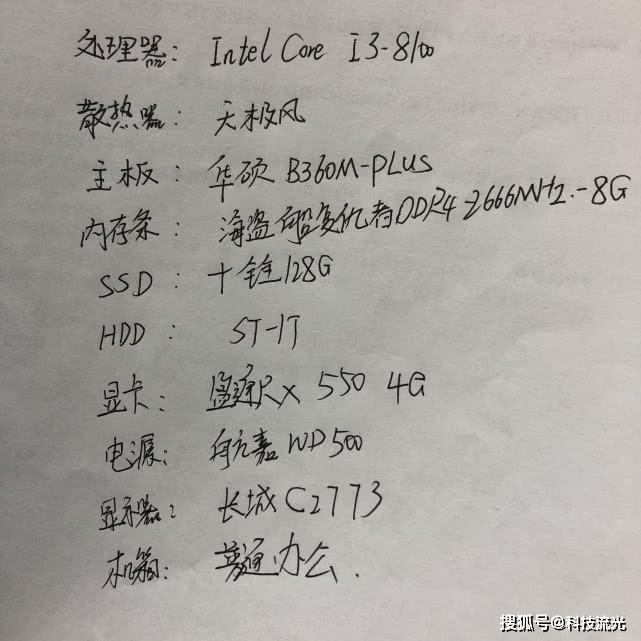 处理器: Intel Core I3-8100
散热器: 天极风
主板: 华硕 B360M-PLUS
内存条: 海盗船复仇者DDR4-2666MHz.-8G
SSD: 十铨128G
HDD: ST-1T
显卡: 盈通RX 550 4G
电源: 航嘉WD500
显示器: 长城C2773
机箱: 普通办公.
搜狐号@科技流光